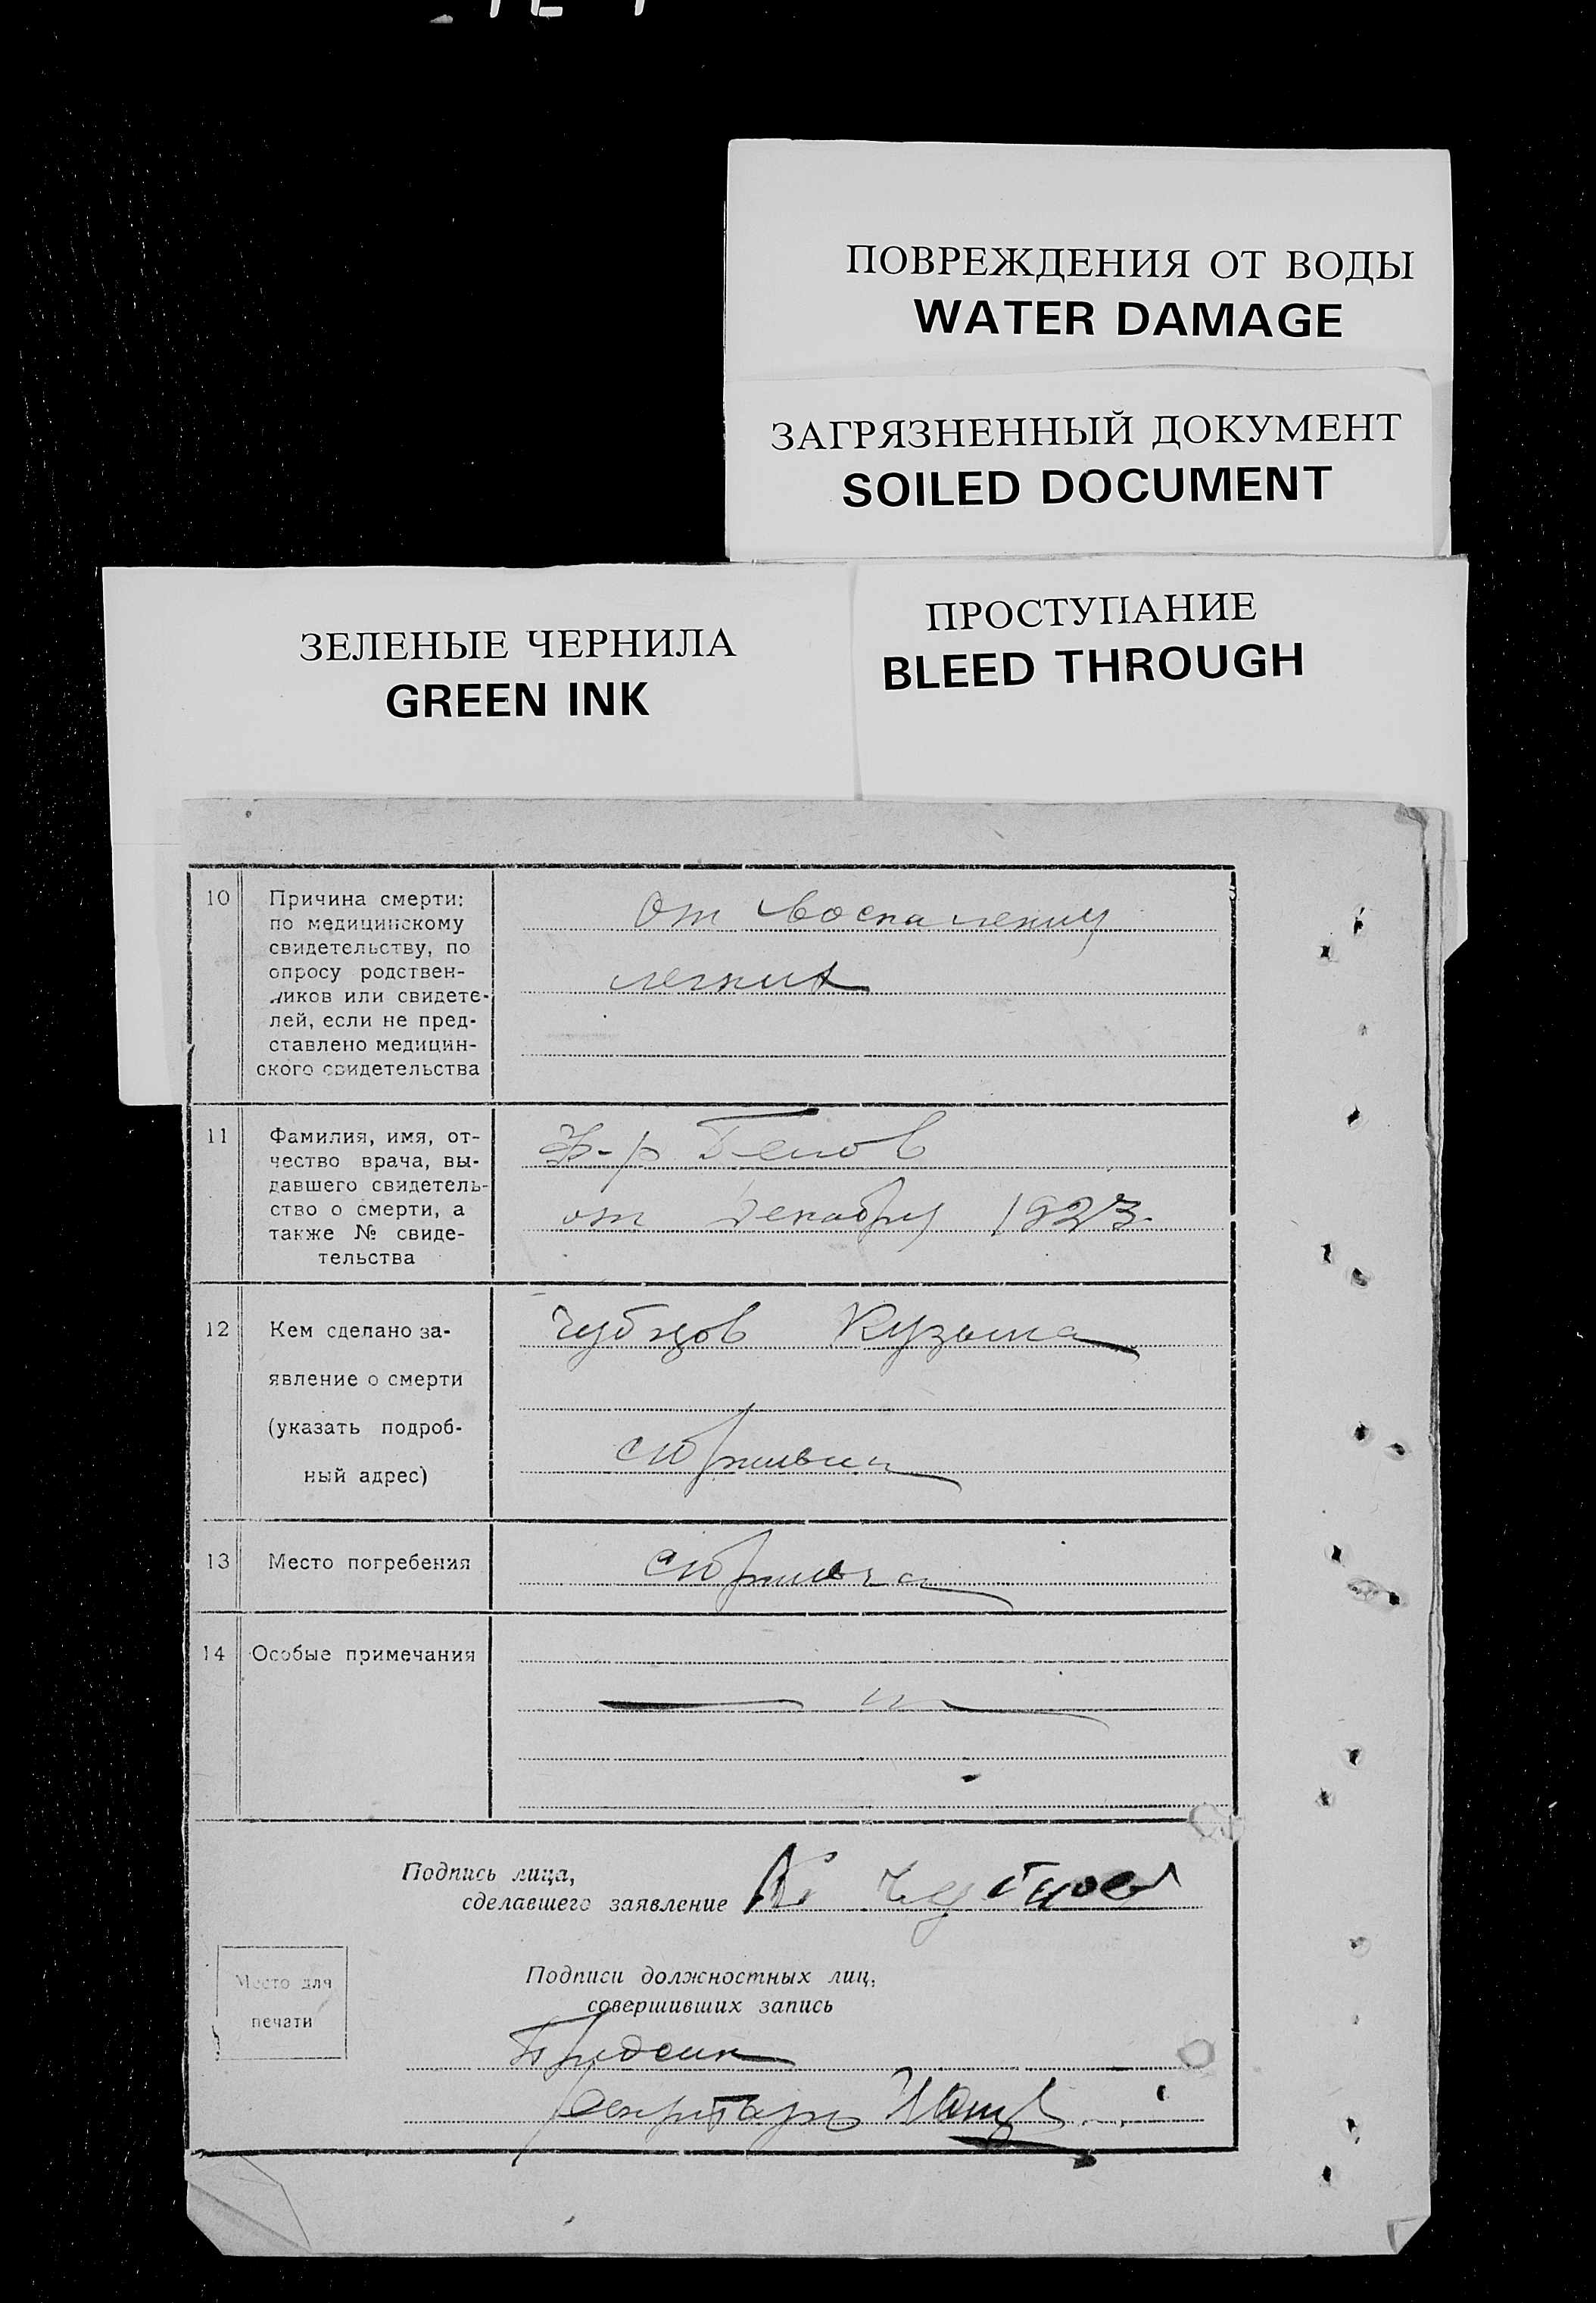 ПОВРЕЖДЕНИЯ ОТ ВОДЫ
WATER DAMAGE
ЗАГРЯЗНЕННЫЙ ДОКУМЕНТ
SOILED DOCUMENT
ЗЕЛЕНЫЕ ЧЕРНИЛА
GREEN INK
ПРОСТУПАНИЕ
BLEED THROUGH
10
Причина смерти:
по медицинскому
свидетельству, по
опросу родствен-
ников или свидете-
лей, если не пред-
ставлено медицин-
ского свидетельства
от воспаления
легких
11
Фамилия, имя, от-
чество врача, вы-
давшего свидетель-
ство о смерти, а
также № свиде-
тельства
от декабря 1923
12
Кем сделано за-
явление о смерти
(указать подроб-
ный адрес)
Чубцов Кузьма
13
Место погребения
14
Особые примечания
Подпись лица,
сделавшего заявление
К Чубцов
Место для
печати
Подписи должностных лиц,
совершивших запись
секретарь